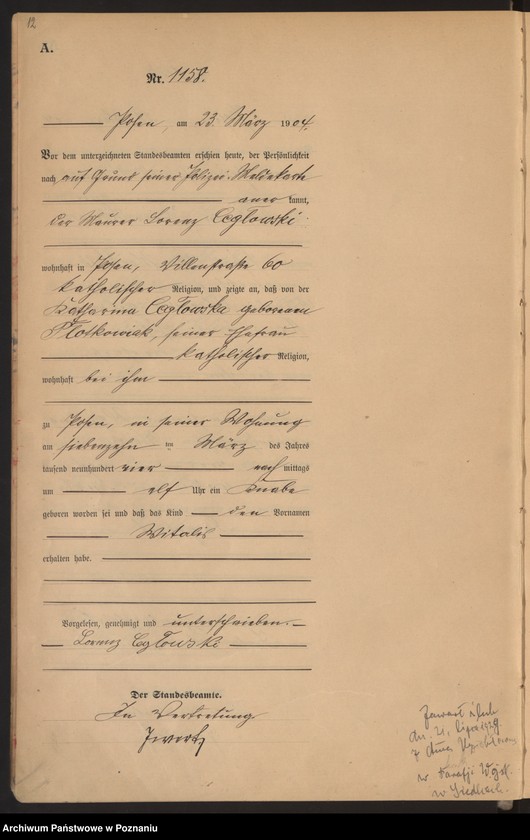 12
A.
Nr. 1158.
Posen, am 23. März 1904.
Vor dem unterzeichneten Standesbeamten erschien heute, der Persönlichkeit
nach auf Grund seiner Polizei-Meldekarte
aner kannt,
der Maurer Lorenz Ceglowski
wohnhaft in Posen, Villenstraße 60
katholischer Religion, und zeigte an, daß von der
Katharina Cegłowska geborenen
Płotkowiak, seiner Ehefrau
katholischer Religion,
wohnhaft bei ihm
zu Posen, in seiner Wohnung
am siebenzehn ten März des Jahres
tausend neunhundert vier nach mittags
um elf Uhr ein Knabe
geboren worden sei und daß das Kind den Vornamen
Witalis
erhalten habe.
Vorgelesen, genehmigt und unterschrieben.
Lorenz Cegłowski
Der Standesbeamte.
In Vertretung
Zawarł ślub
dn. 21. lipca 1929.
z Anną
w Parafji Wojsk.
w Siedlcach.
Archiwum Państwowe w Poznaniu